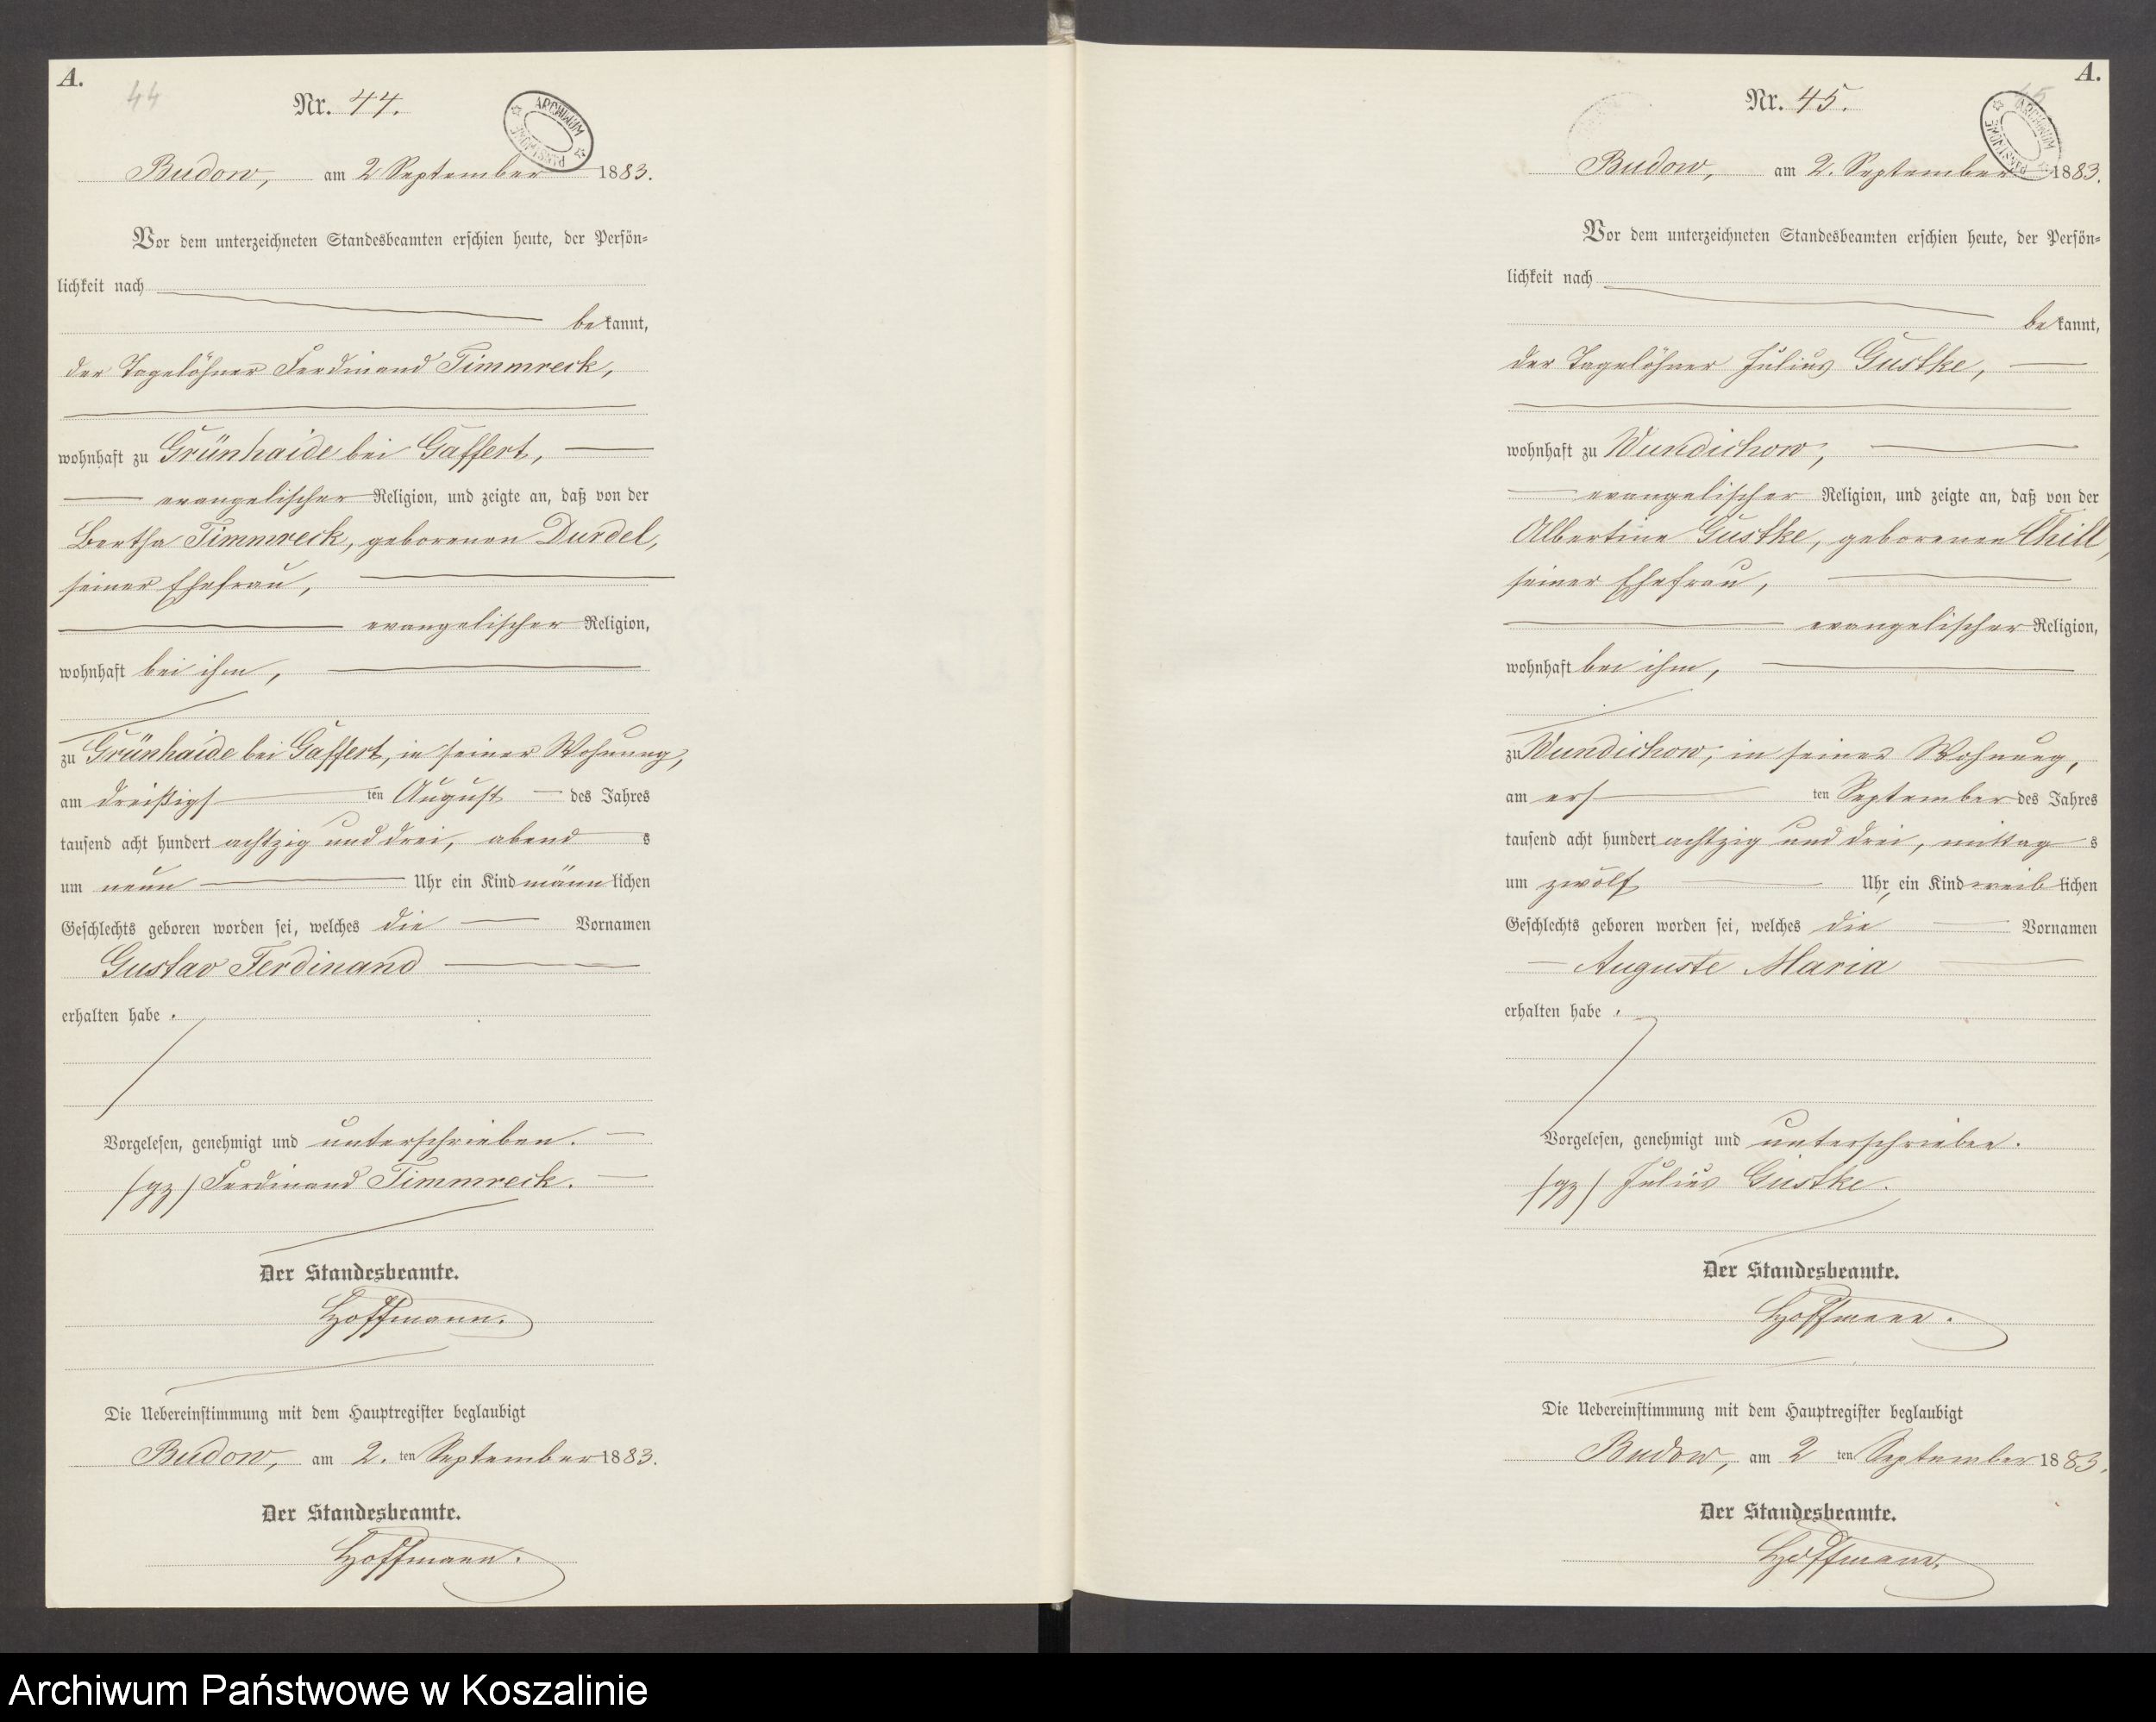 A.
44
Nr. 44.
ARCHIWUM PAŃSTWOWE
Budow, am 2 September 1883.
Vor dem unterzeichneten Standesbeamten erschien heute, der Persön-
lichkeit nach
bekannt,
der Tagelöhner Ferdinand Timmreck,
wohnhaft zu Grünhaide bei Gaffert,
evangelischer Religion, und zeigte an, daß von der
Bertha Timmreck, geborenen Durdel,
seiner Ehefrau,
evangelischer Religion,
wohnhaft bei ihm,
zu Grünhaide bei Gaffert, in seiner Wohnung,
am dreißigsten August des Jahres
tausend acht hundert achtzig und drei, abends
um neun Uhr ein Kind männlichen
Geschlechts geboren worden sei, welches die Vornamen
Gustav Ferdinand
erhalten habe.
Vorgelesen, genehmigt und unterschrieben.
/gz/ Ferdinand Timmreck.
Der Standesbeamte.
Hoffmann.
Die Uebereinstimmung mit dem Hauptregister beglaubigt
Budow, am 2. ten September 1883.
Der Standesbeamte.
Hoffmann.
A.
45
Nr. 45.
ARCHIWUM PAŃSTWOWE
Budow, am 2. September 1883.
Vor dem unterzeichneten Standesbeamten erschien heute, der Persön-
lichkeit nach
bekannt,
der Tagelöhner Julius Gustke,
wohnhaft zu Wundichow,
evangelischer Religion, und zeigte an, daß von der
Albertine Gustke, geborenen Chill,
seiner Ehefrau,
evangelischer Religion,
wohnhaft bei ihm,
zu Wundichow, in seiner Wohnung,
am ersten September des Jahres
tausend acht hundert achtzig und drei, mittags
um zwölf Uhr, ein Kind weiblichen
Geschlechts geboren worden sei, welches die Vornamen
Auguste Maria
erhalten habe.
Vorgelesen, genehmigt und unterschrieben.
/gz/ Julius Gustke.
Der Standesbeamte.
Hoffmann.
Die Uebereinstimmung mit dem Hauptregister beglaubigt
Budow, am 2 ten September 1883.
Der Standesbeamte.
Hoffmann.
Archiwum Państwowe w Koszalinie